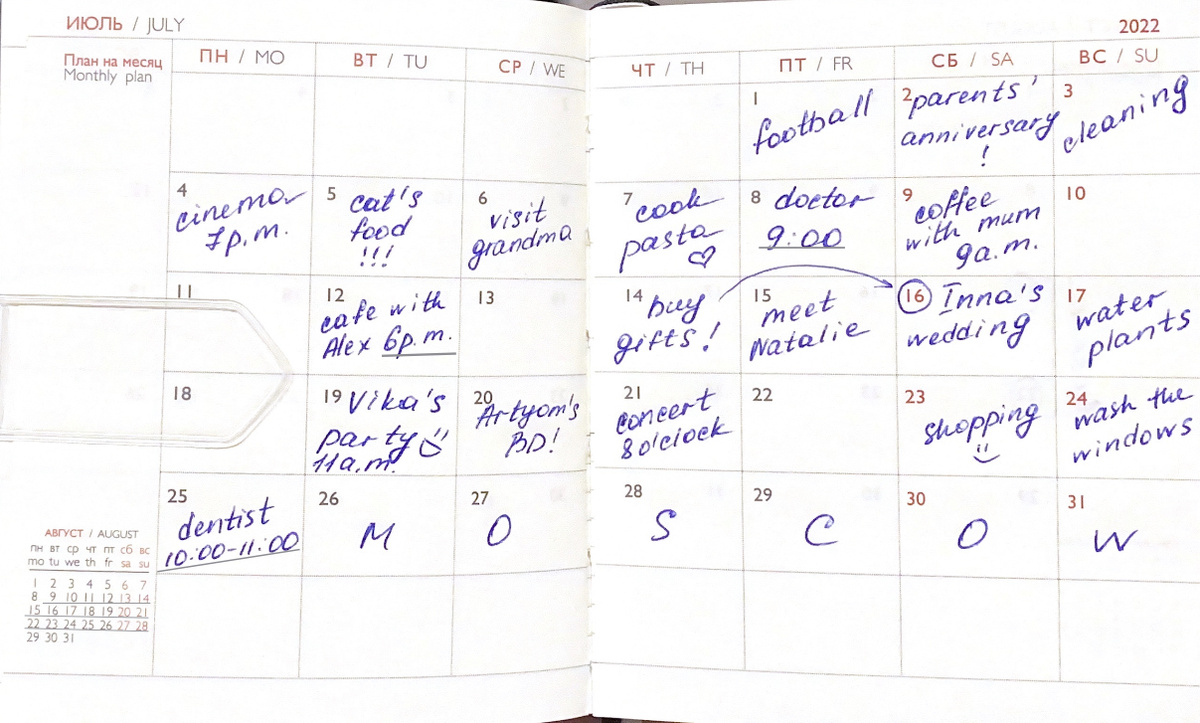 ИЮЛЬ / JULY
2022
План на месяц
Monthly plan
ПН / MO
ВТ / TU
СР / WE
ЧТ / TH
ПТ / FR
СБ / SA
ВС / SU
1
football
2 parents'
anniversary
!
3
cleaning
4
cinema
7p.m.
5 cat's
food
!!!
6
visit
grandma
7
cook
pasta ♡
8 doctor
9:00
9
coffee
with mum
9a.m.
10
11
12
cafe with
Alex 6p.m.
13
14 buy
gifts!
15
meet
Natalie
16 Inna's
wedding
17
water
plants
18
19 Vika's
party
11a.m.
20
Artyom's
BD!
21
concert
8 o'clock
22
23
shopping
24
wash the
windows
25
dentist
10:00-11:00
26
M
27
O
28
S
29
C
30
O
31
W
АВГУСТ / AUGUST
ПН ВТ СР ЧТ ПТ СБ ВС
mo tu we th fr sa su
1 2 3 4 5 6 7
8 9 10 11 12 13 14
15 16 17 18 19 20 21
22 23 24 25 26 27 28
29 30 31